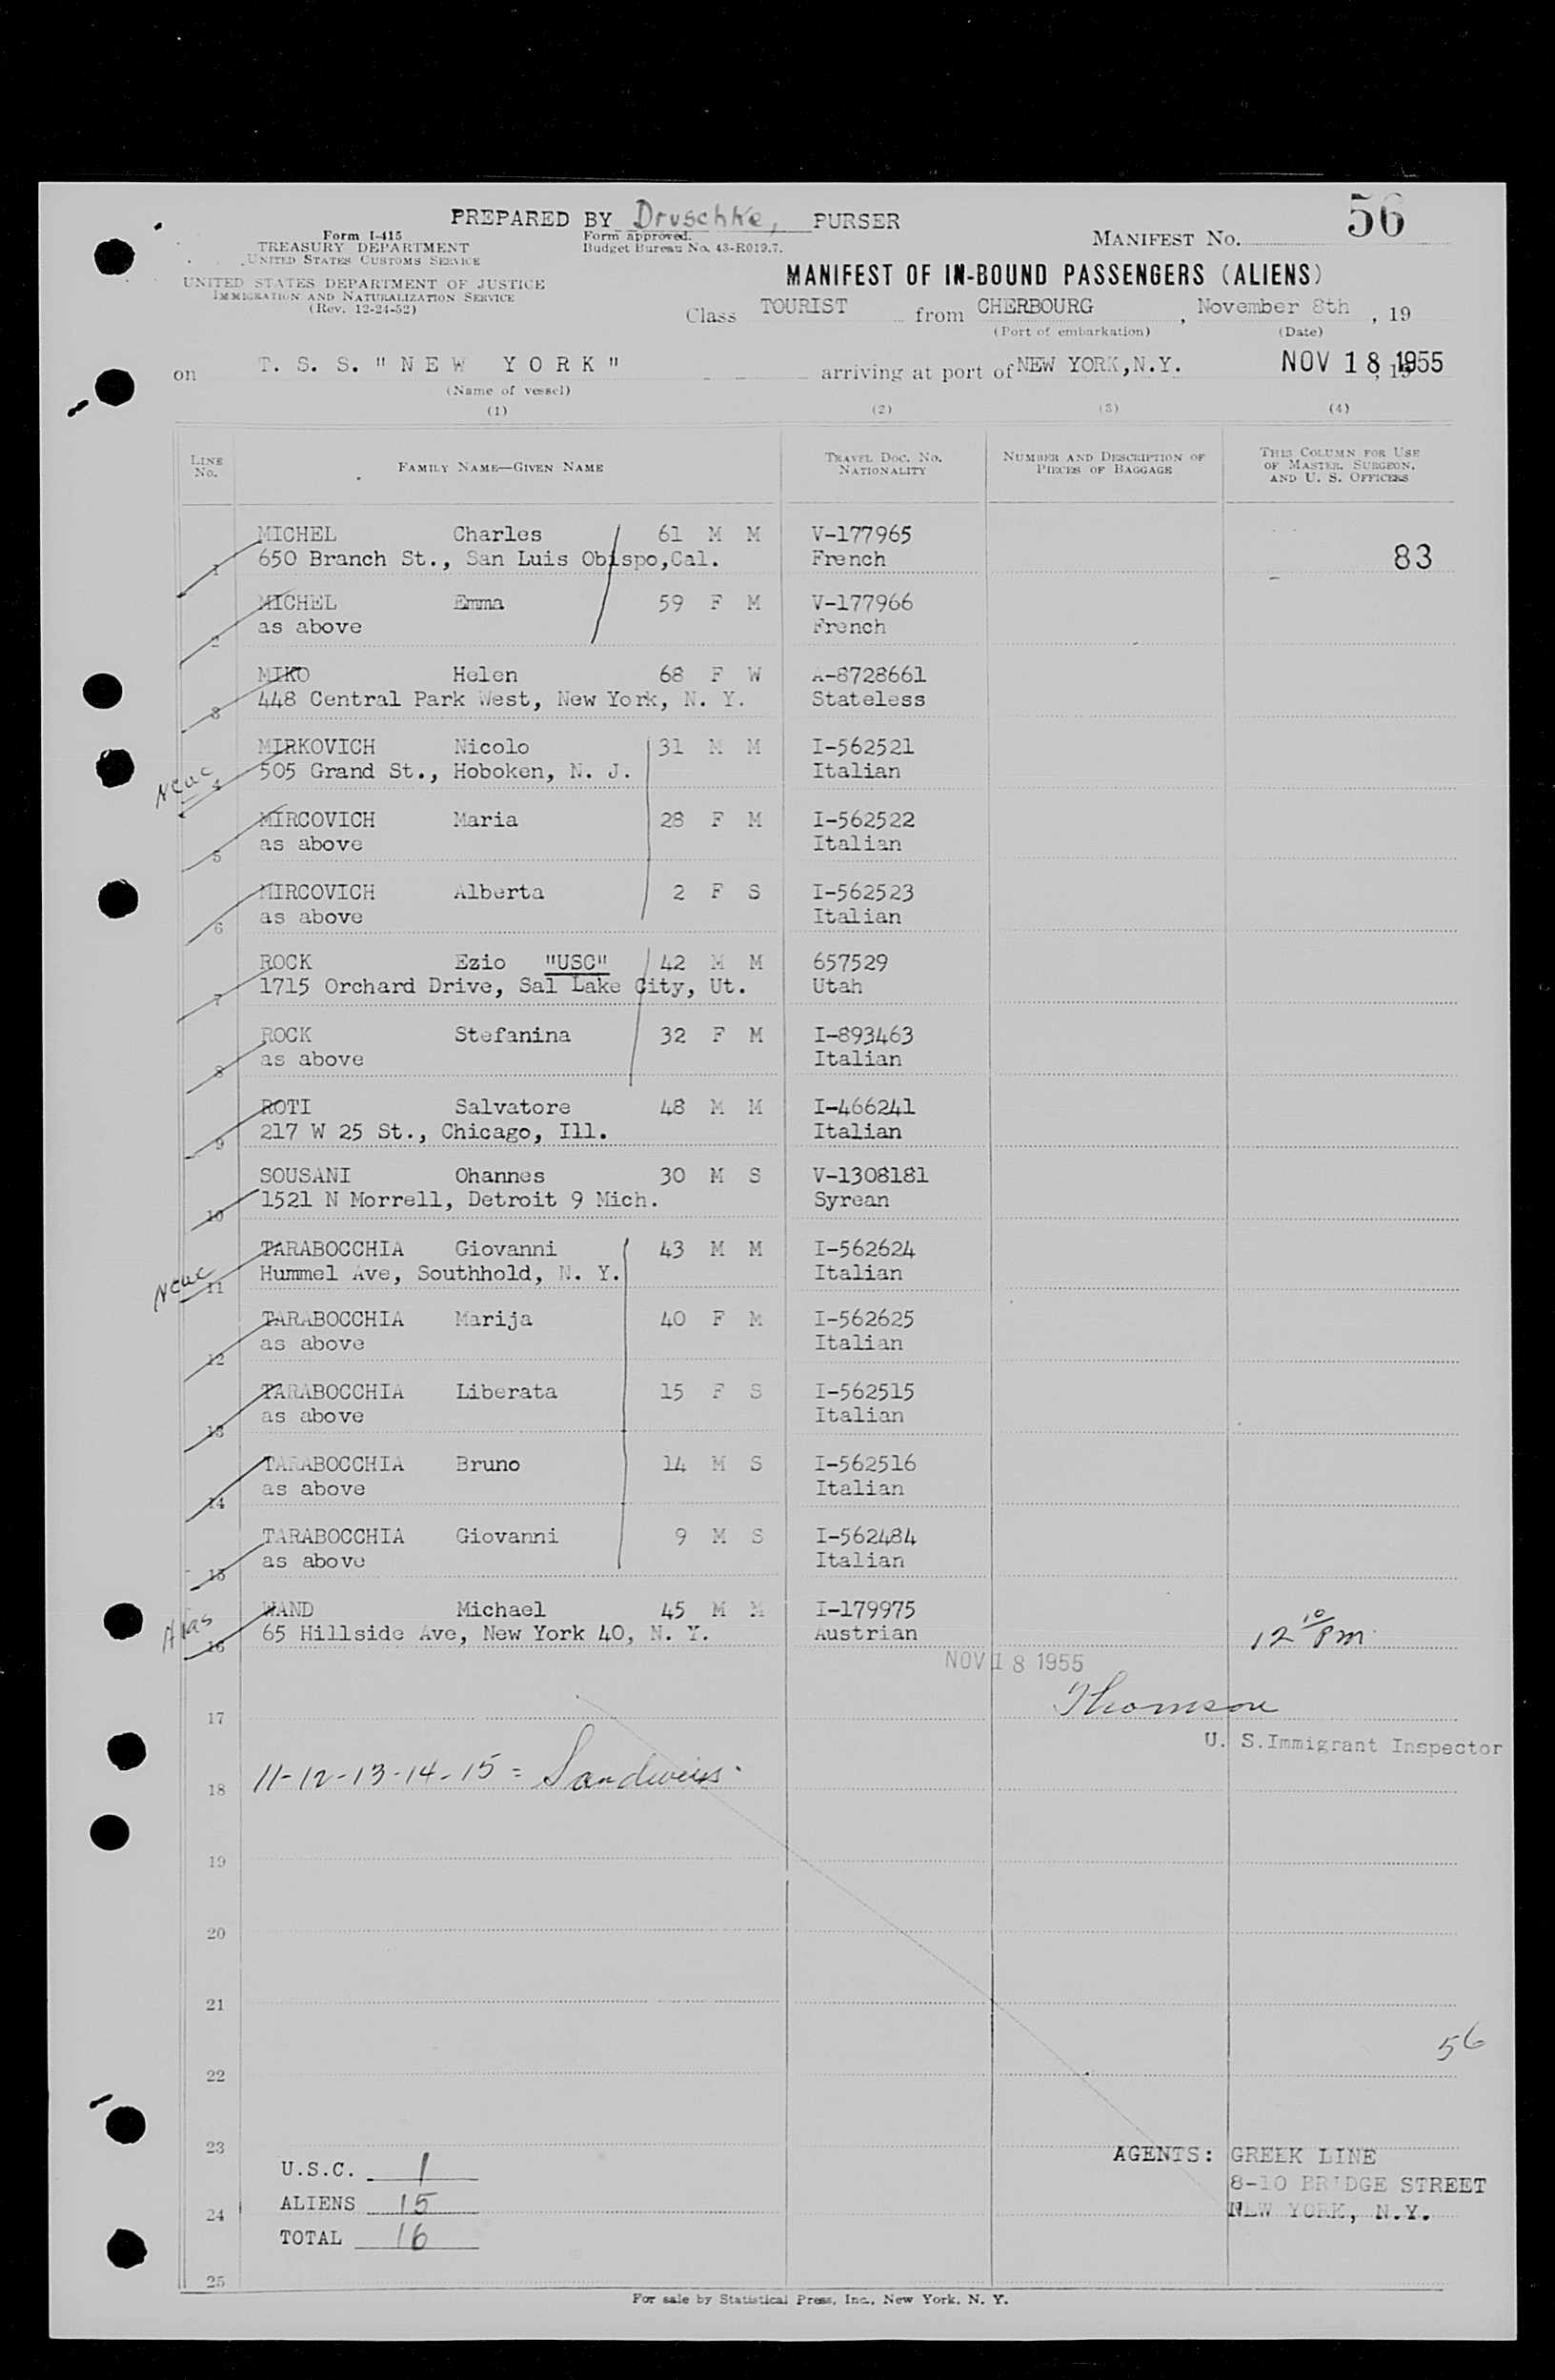 56
PREPARED BY Druschke, PURSER
Form I-415
TREASURY DEPARTMENT
UNITED STATES CUSTOMS SERVICE
Form approved.
Budget Bureau No. 43-R019.7.
MANIFEST NO.
UNITED STATES DEPARTMENT OF JUSTICE
IMMIGRATION AND NATURALIZATION SERVICE
(Rev. 12-24-52)
MANIFEST OF IN-BOUND PASSENGERS (ALIENS)
Class TOURIST from CHERBOURG, November 8th, 19
(Port of embarkation) (Date)
on T. S. S. "NEW YORK" arriving at port of NEW YORK, N.Y. NOV 18 1955, 19
(Name of vessel)
(1) (2) (3) (4)
LINE NO.
FAMILY NAME—GIVEN NAME
TRAVEL DOC. NO. NATIONALITY
NUMBER AND DESCRIPTION OF PIECES OF BAGGAGE
THIS COLUMN FOR USE OF MASTER, SURGEON, AND U. S. OFFICERS
MICHEL Charles 61 M M V-177965
1 650 Branch St., San Luis Obispo,Cal. French 83
MICHEL Emma 59 F M V-177966
2 as above French
MIKO Helen 68 F W A-8728661
3 448 Central Park West, New York, N. Y. Stateless
MIRKOVICH Nicolo 31 M M I-562521
4 505 Grand St., Hoboken, N. J. Italian
MIRCOVICH Maria 28 F M I-562522
5 as above Italian
MIRCOVICH Alberta 2 F S I-562523
6 as above Italian
ROCK Ezio "USC" 42 M M 657529
7 1715 Orchard Drive, Sal Lake City, Ut. Utah
ROCK Stefanina 32 F M I-893463
8 as above Italian
ROTI Salvatore 48 M M I-466241
9 217 W 25 St., Chicago, Ill. Italian
SOUSANI Ohannes 30 M S V-1308181
10 1521 N Morrell, Detroit 9 Mich. Syrean
TARABOCCHIA Giovanni 43 M M I-562624
11 Hummel Ave, Southhold, N. Y. Italian
TARABOCCHIA Marija 40 F M I-562625
12 as above Italian
TARABOCCHIA Liberata 15 F S I-562515
13 as above Italian
TARABOCCHIA Bruno 14 M S I-562516
14 as above Italian
TARABOCCHIA Giovanni 9 M S I-562484
15 as above Italian
WAND Michael 45 M M I-179975
16 65 Hillside Ave, New York 40, N. Y. Austrian 12 10/pm
NOV 18 1955
17 Thomson
U. S.Immigrant Inspector
18 11-12-13-14-15 = Sandweiss.
19
20
21
56
22
23
U.S.C. 1
ALIENS 15
24
TOTAL 16
25
AGENTS: GREEK LINE
8-10 BRIDGE STREET
NEW YORK, N.Y.
For sale by Statistical Press, Inc., New York, N. Y.